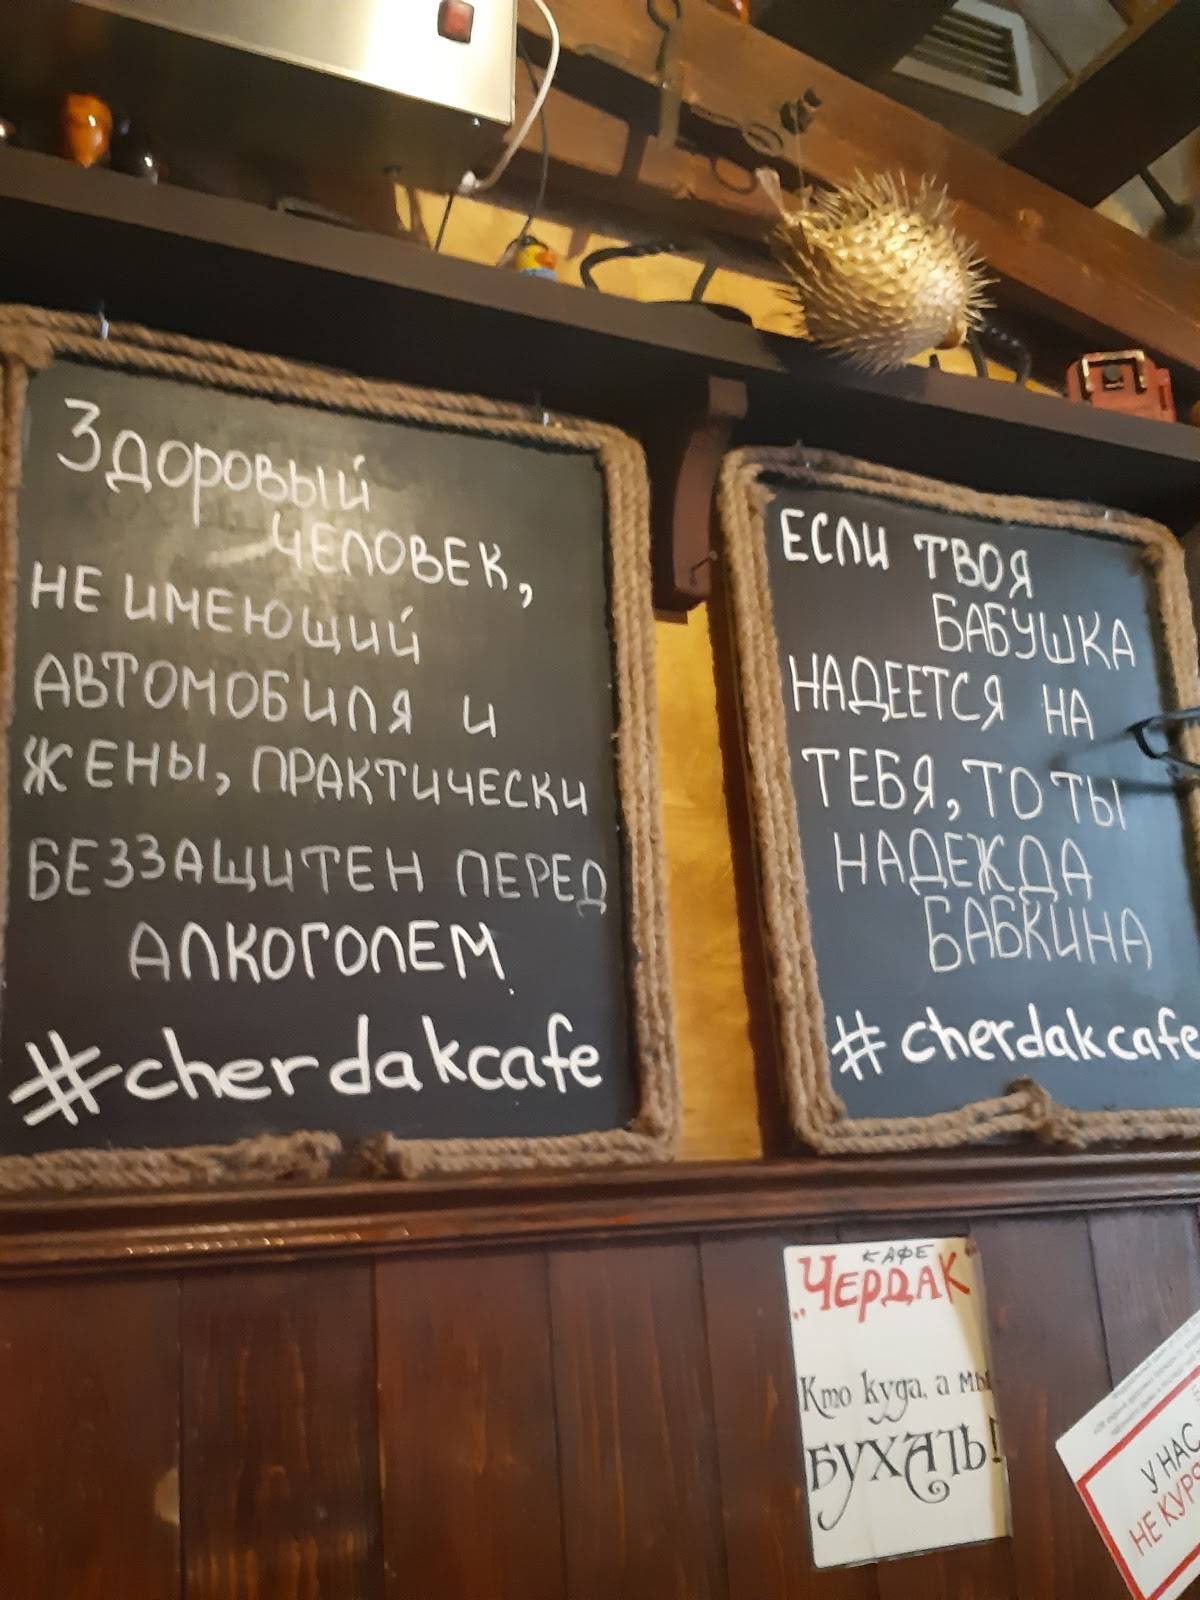 Здоровый
человек,
не имеющий
автомобиля и
жены, практически
беззащитен перед
алкоголем.
#cherdakcafe
если твоя
бабушка
надеется на
тебя, то ты
надежда
бабкина
#cherdakcafe
КАФЕ
„ЧЕРДАК“
Кто куда, а мы
БУХАТЬ!
У НАС
НЕ